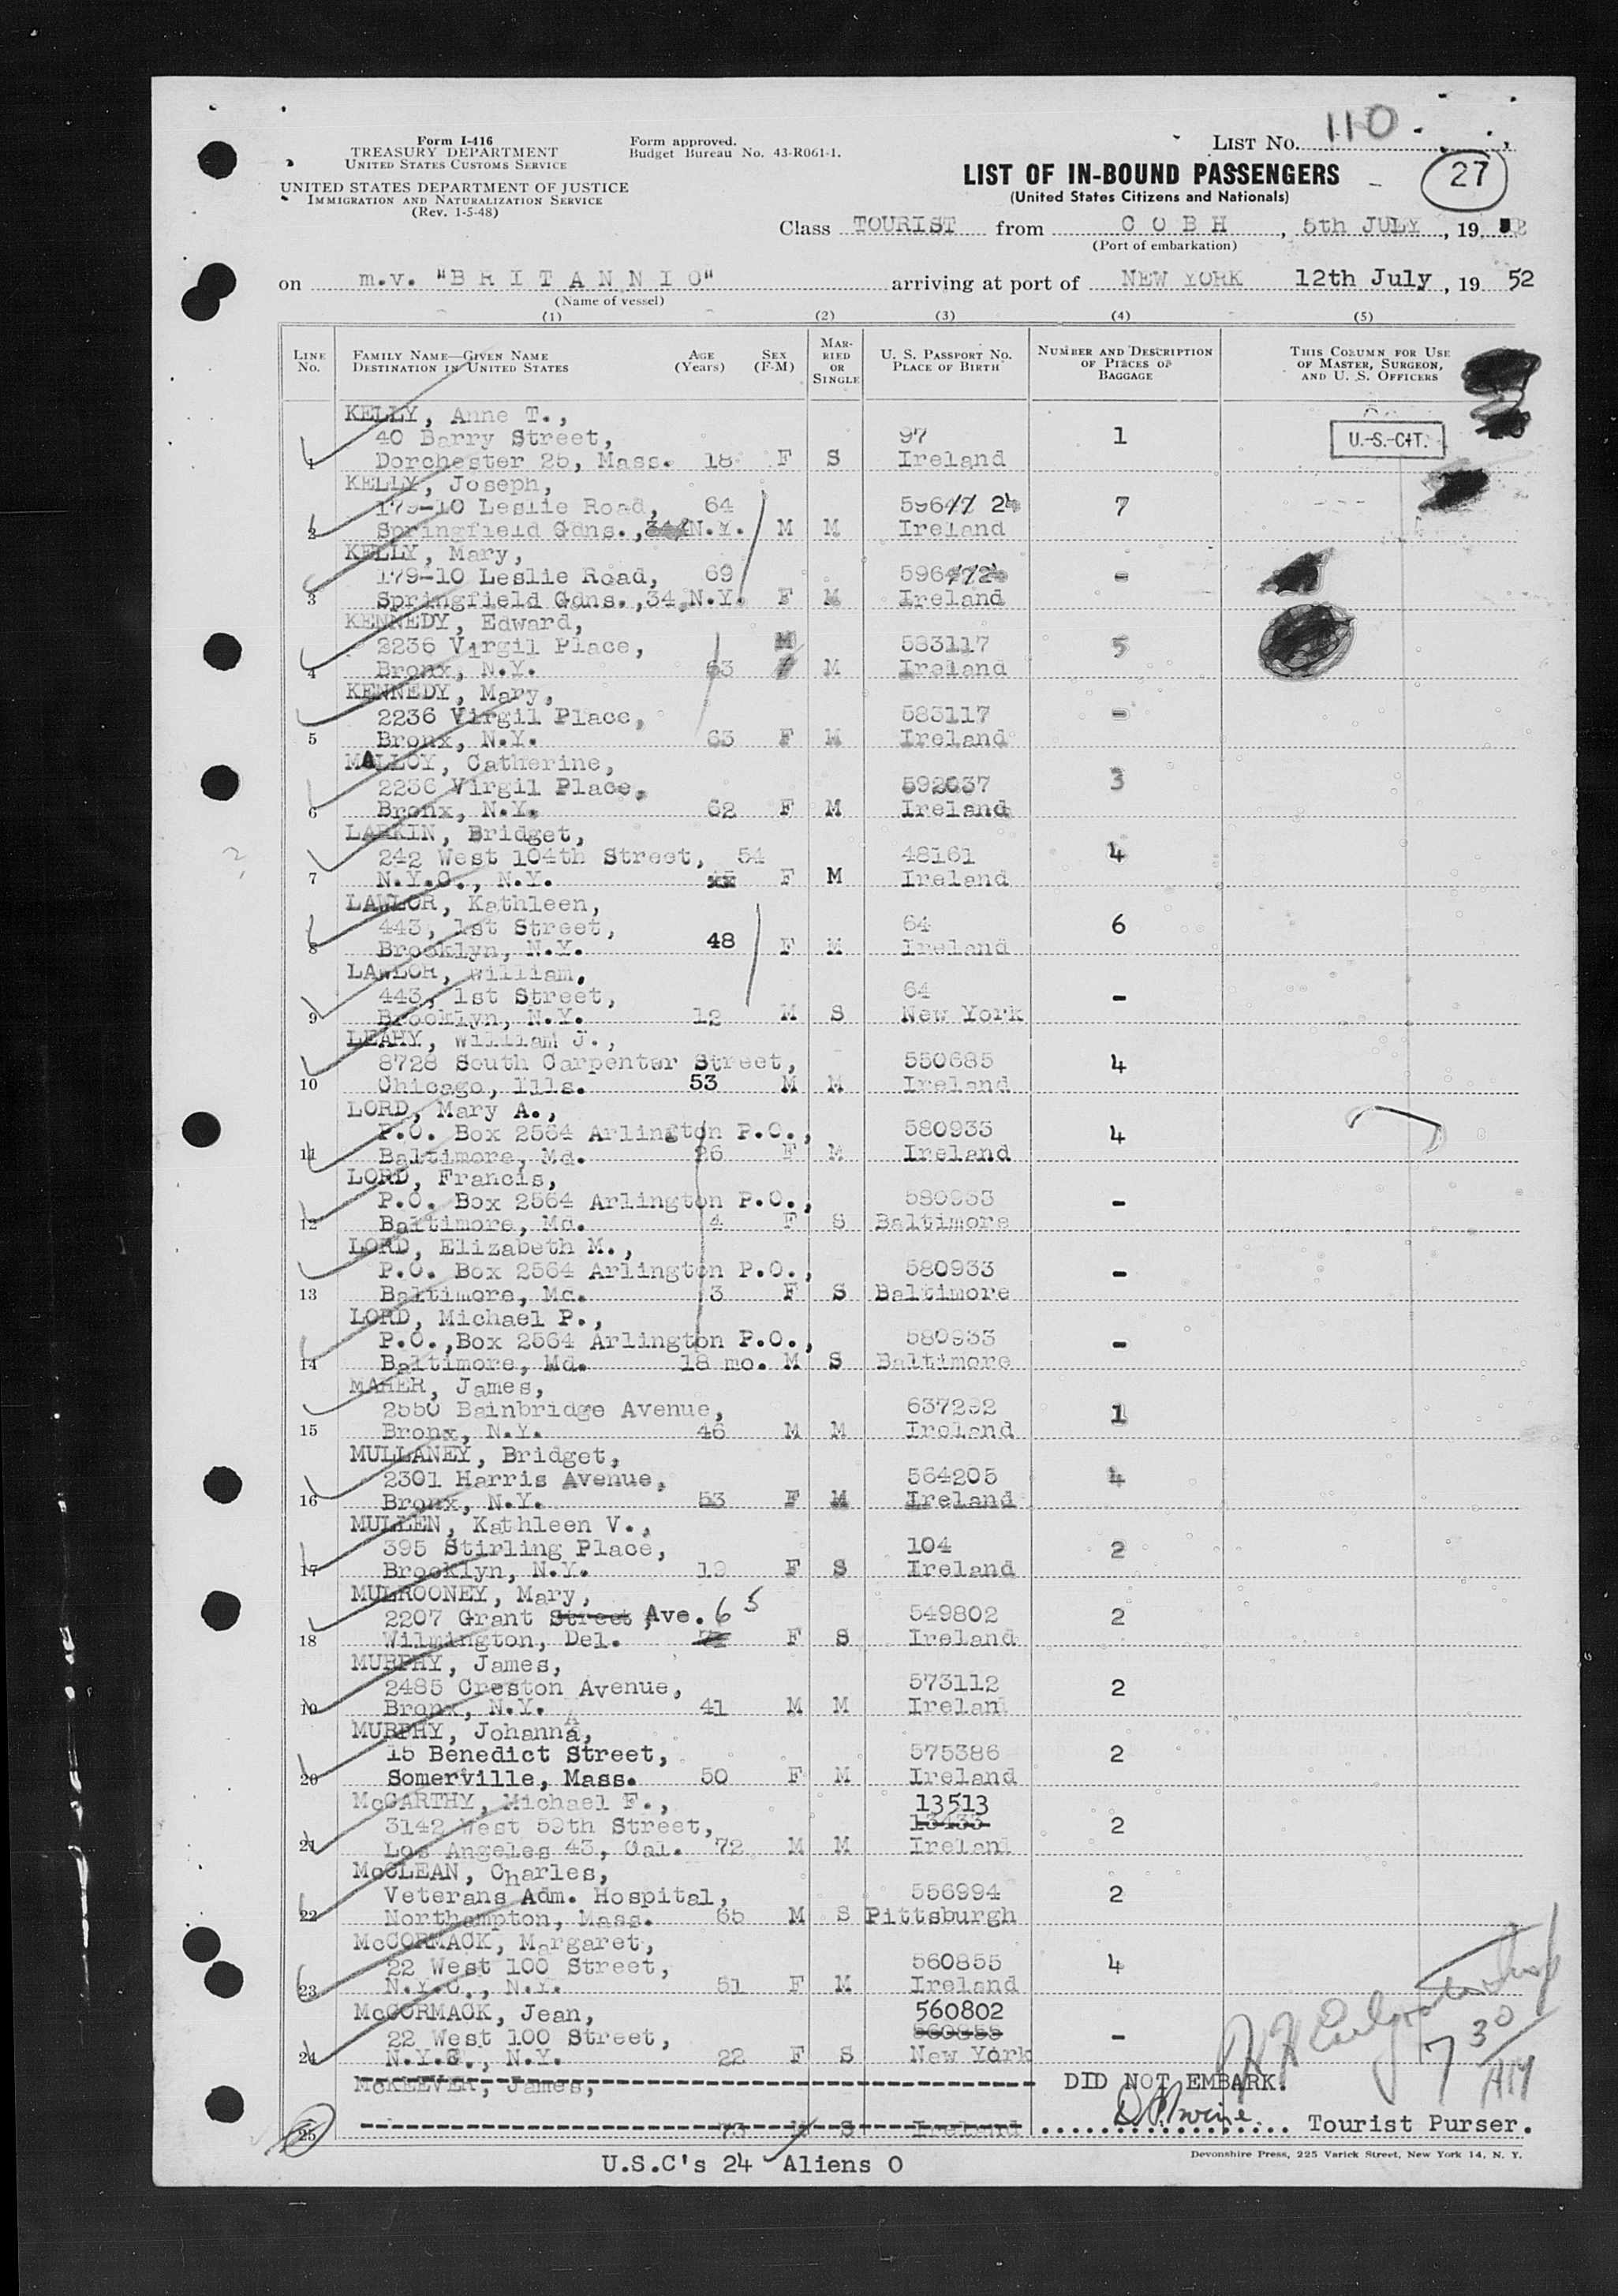 Form I-416
TREASURY DEPARTMENT
UNITED STATES CUSTOMS SERVICE
UNITED STATES DEPARTMENT OF JUSTICE
IMMIGRATION AND NATURALIZATION SERVICE
(Rev. 1-5-48)
Form approved.
Budget Bureau No. 43-R061-1.
LIST No. 110
27
LIST OF IN-BOUND PASSENGERS
(United States Citizens and Nationals)
Class TOURIST from C O B H, 5th JULY, 19 2
(Port of embarkation)
on m.v. "B R I T A N N I C" arriving at port of NEW YORK 12th July, 19 52
(Name of vessel)
(1) (2) (3) (4) (5)
LINE No. FAMILY NAME—GIVEN NAME DESTINATION IN UNITED STATES AGE (Years) SEX (F-M) MARRIED OR SINGLE U. S. PASSPORT NO. PLACE OF BIRTH NUMBER AND DESCRIPTION OF PIECES OF BAGGAGE THIS COLUMN FOR USE OF MASTER, SURGEON, AND U. S. OFFICERS
KELLY, Anne T.,
40 Barry Street, 97 1 U.-S.-CIT.
1 Dorchester 25, Mass. 18 F S Ireland
KELLY, Joseph,
179-10 Leslie Road, 64 59647 24 7
2 Springfield Gdns., 34 N.Y. M M Ireland
KELLY, Mary,
179-10 Leslie Road, 69 596 -
3 Springfield Gdns.,34,N.Y. F M Ireland
KENNEDY, Edward,
2236 Virgil Place, M 583117 5
4 Bronx, N.Y. 63 M Ireland
KENNEDY, Mary,
2236 Virgil Place, 583117 -
5 Bronx, N.Y. 63 F M Ireland
MALLOY, Catherine,
2236 Virgil Place, 592037 3
6 Bronx, N.Y. 62 F M Ireland
LARKIN, Bridget,
242 West 104th Street, 54 48161 4
7 N.Y.C., N.Y. xx F M Ireland
LAWLOR, Kathleen,
443, 1st Street, 64 6
8 Brooklyn, N.Y. 48 F M Ireland
LAWLOR, William,
443, 1st Street, 64 -
9 Brooklyn, N.Y. 12 M S New York
LEAHY, William J.,
8728 South Carpenter Street, 550685 4
10 Chicago, Ills. 53 M M Ireland
LORD, Mary A.,
P.O. Box 2564 Arlington P.O., 580933 4
11 Baltimore, Md. 26 F M Ireland
LORD, Francis,
P.O. Box 2564 Arlington P.O., 580933 -
12 Baltimore, Md. 4 F S Baltimore
LORD, Elizabeth M.,
P.O. Box 2564 Arlington P.O., 580933 -
13 Baltimore, Md. 3 F S Baltimore
LORD, Michael P.,
P.O.,Box 2564 Arlington P.O., 580933 -
14 Baltimore, Md. 18 mo. M S Baltimore
MAHER, James,
2550 Bainbridge Avenue, 637292 1
15 Bronx, N.Y. 46 M M Ireland
MULLANEY, Bridget,
2301 Harris Avenue, 564205 4
16 Bronx, N.Y. 53 F M Ireland
MULLEN, Kathleen V.,
395 Stirling Place, 104 2
17 Brooklyn, N.Y. 19 F S Ireland
MULROONEY, Mary,
2207 Grant Street Ave. 65 549802 2
18 Wilmington, Del. F S Ireland
MURPHY, James,
2485 Creston Avenue, 573112 2
19 Bronx, N.Y. 41 M M Ireland
MURPHY, Johanna,
15 Benedict Street, 575386 2
20 Somerville, Mass. 50 F M Ireland
McCARTHY, Michael F., 13513
3142 West 59th Street, 13433 2
21 Los Angeles 43, Cal. 72 M M Ireland
McCLEAN, Charles,
Veterans Adm. Hospital, 556994 2
22 Northampton, Mass. 65 M S Pittsburgh
McCORMACK, Margaret,
22 West 100 Street, 560855 4
23 N.Y.C., N.Y. 51 F M Ireland
McCORMACK, Jean, 560802
22 West 100 Street, 560855 -
24 N.Y.C., N.Y. 22 F S New York
7 30
McKLEVER, James, DID NOT EMBARK.
25 73 M S Ireland Tourist Purser.
U.S.C's 24 Aliens 0
Devonshire Press, 225 Varick Street, New York 14, N. Y.